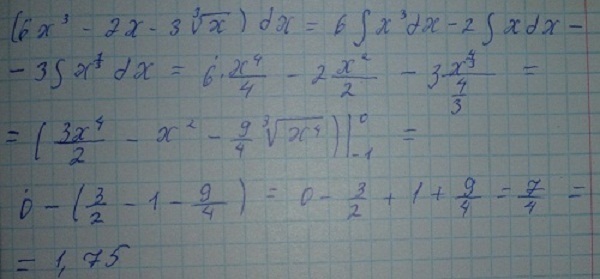 (6x³ - 2x - 3∛x) dx = 6∫x³dx - 2∫xdx -
- 3∫x^⅓ dx = 6·x⁴/4 - 2 x²/2 - 3 x^(4/3)/(4/3) =
= (3x⁴/2 - x² - 9/4 ∛x⁴)|₋₁⁰ =
0 - (3/2 - 1 - 9/4) = 0 - 3/2 + 1 + 9/4 = 7/4 =
= 1,75